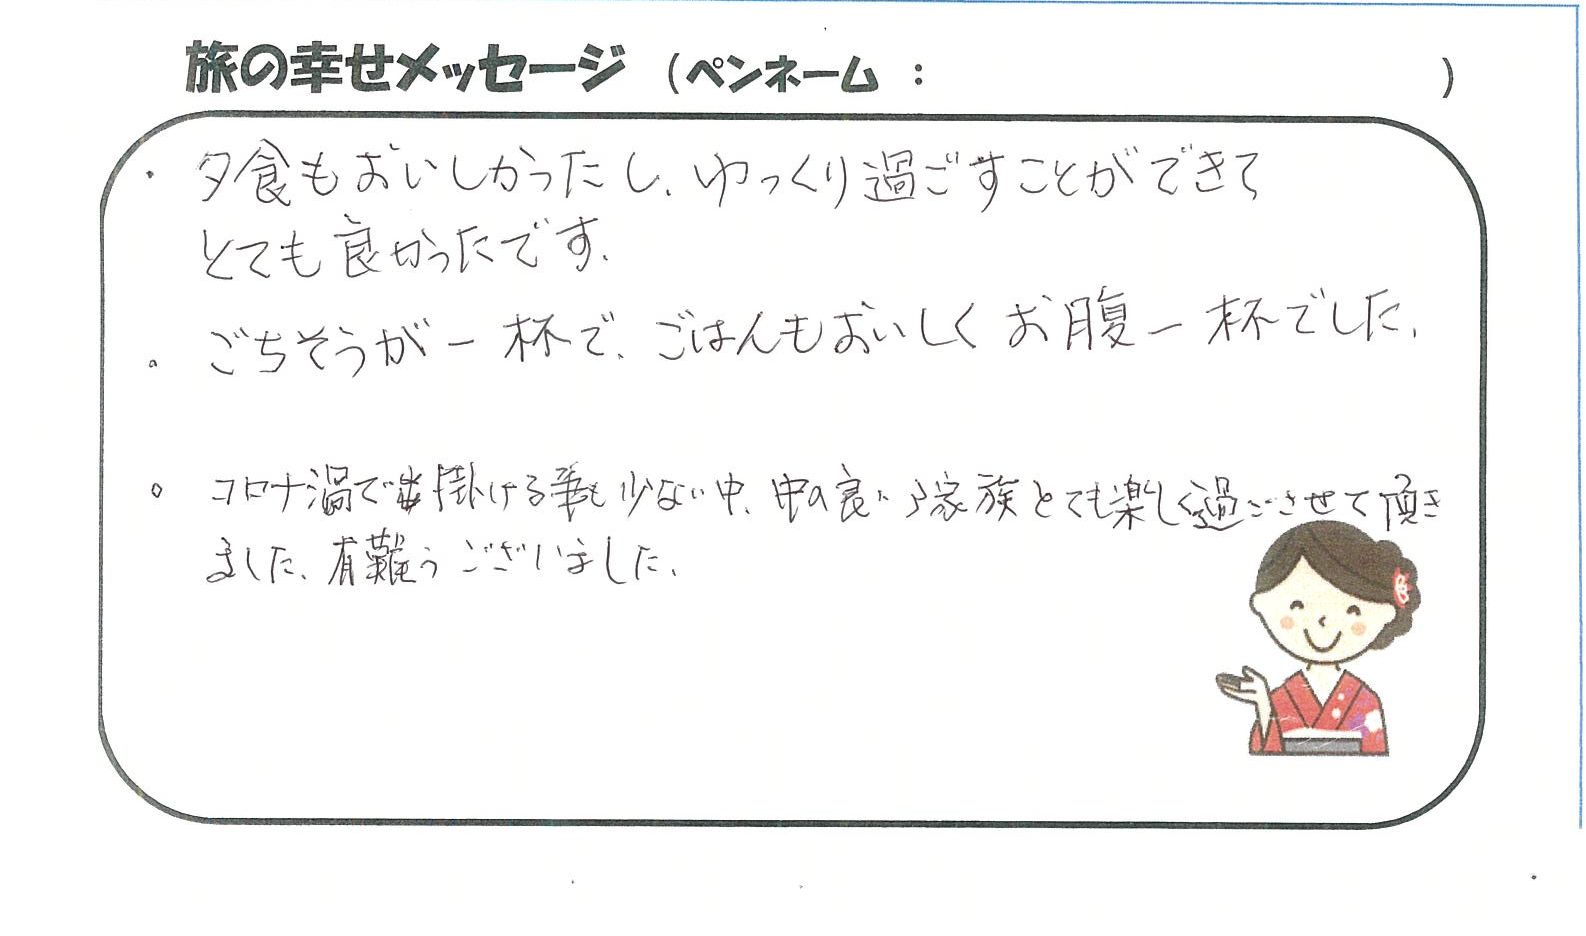 旅の幸せメッセージ (ペンネーム : )
・ 夕食もおいしかったし、ゆっくり過ごすことができて
とても良かったです。
・ ごちそうが一杯で、ごはんもおいしくお腹一杯でした。
○ コロナ渦で出掛ける事も少ない中、中の良い家族とても楽しく過ごさせて頂き
ました、有難うございました。